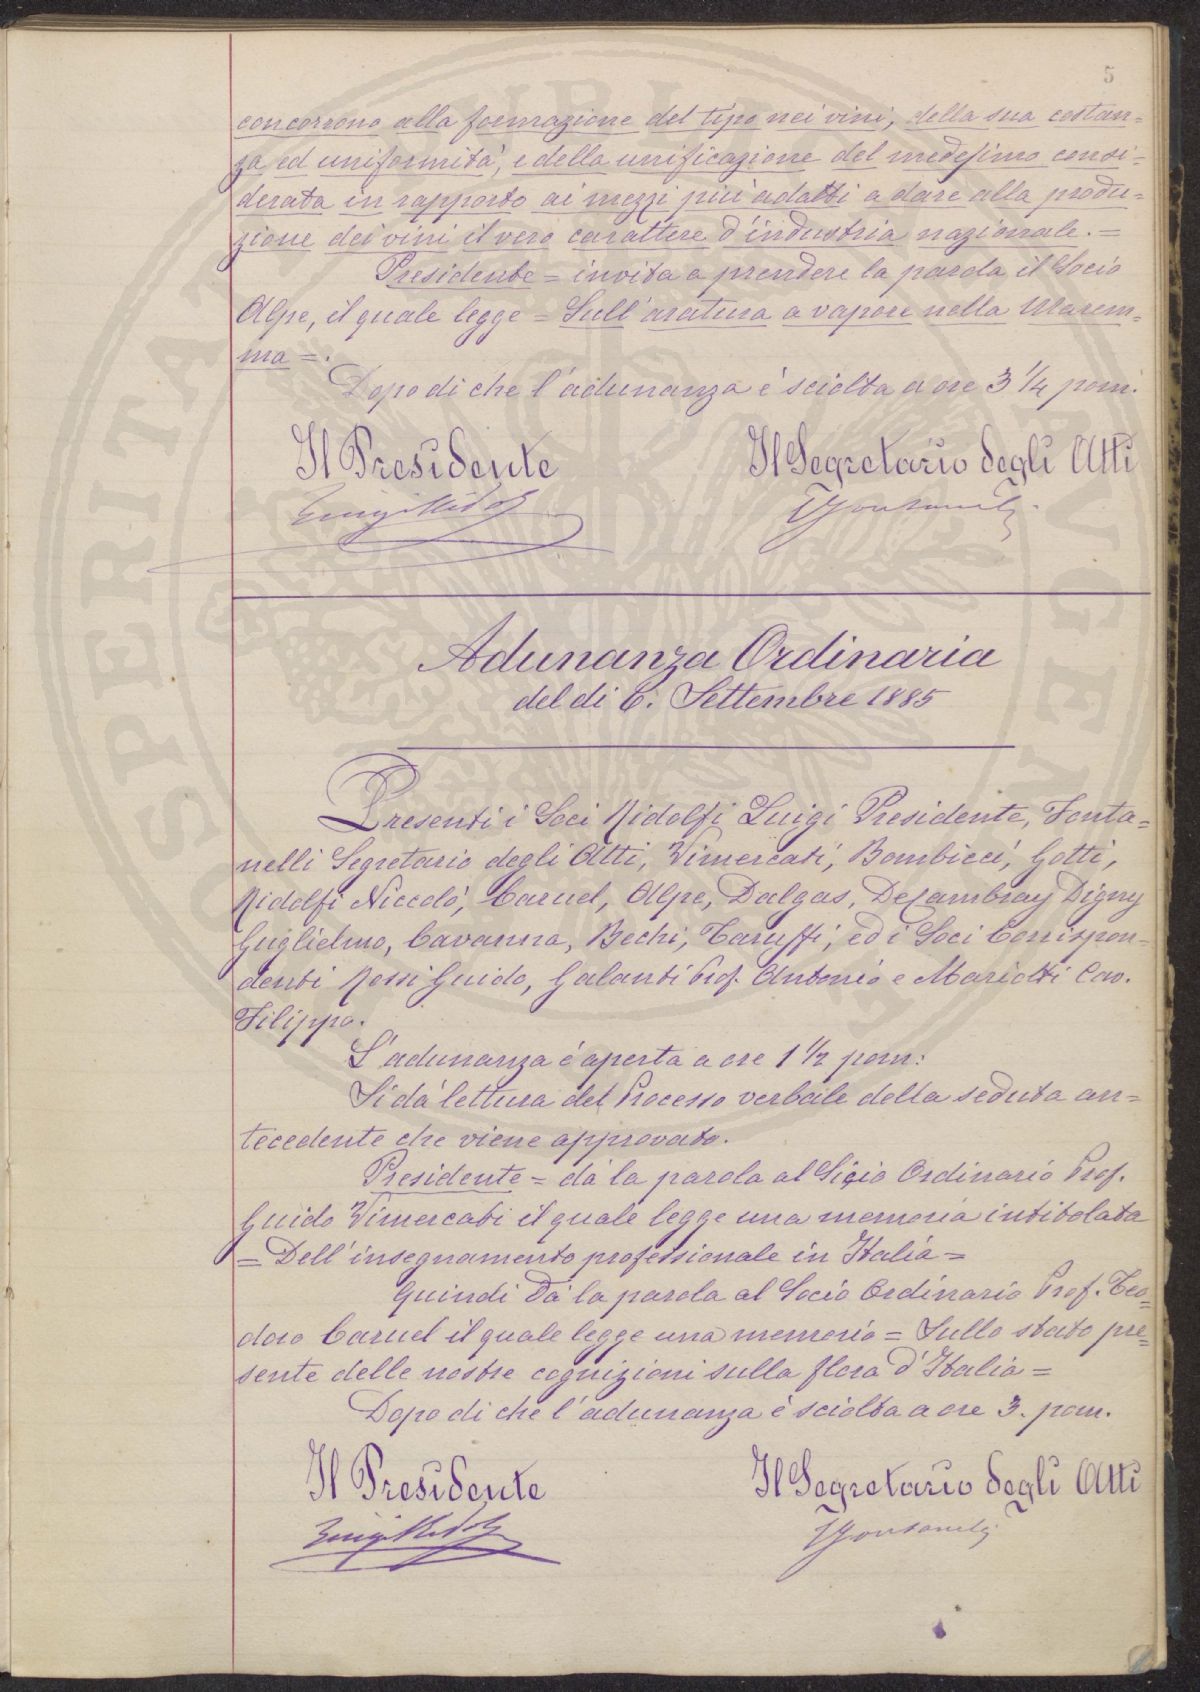 5
concorrono alla formazione del tipo nei vini, della sua costan=
za, ed uniformità, e della unificazione del medesimo consi=
derata in rapporto ai mezzi più adatti a dare alla produ=
zione dei vini il vero carattere d'industria nazionale. =
Presidente = invita a prendere la parola il Socio
Alpe, il quale legge = Sull'aratura a vapore nella Marem=
ma =.
Dopo di che l'adunanza è sciolta a ore 3 1/4 pom.
Il Presidente Il Segretario degli Atti
Luigi Ridolfi
Adunanza Ordinaria
del dì 6. Settembre 1885
Presenti i Soci Ridolfi Luigi Presidente, Fonta=
nelli Segretario degli Atti, Vimercati, Bombicci, Gotti,
Ridolfi Niccolò, Caruel, Alpe, Dalgas, De Cambray Digny
Guglielmo, Cavanna, Bechi, Taruffi, ed i Soci Corrispon=
denti Rossi Guido, Galanti Prof. Antonio e Mariotti Cav.
Filippo.
L'adunanza è aperta a ore 1 1/2 pom:
Si dà lettura del Processo verbale della seduta an=
tecedente che viene approvato.
Presidente = dà la parola al Socio Ordinario Prof.
Guido Vimercati il quale legge una memoria intitolata
= Dell'insegnamento professionale in Italia =
Quindi dà la parola al Socio Ordinario Prof. Teo=
doro Caruel il quale legge una memoria = Sullo stato pre=
sente delle nostre cognizioni sulla flora d'Italia =
Dopo di che l'adunanza è sciolta a ore 3. pom.
Il Presidente Il Segretario degli Atti
Luigi Ridolfi